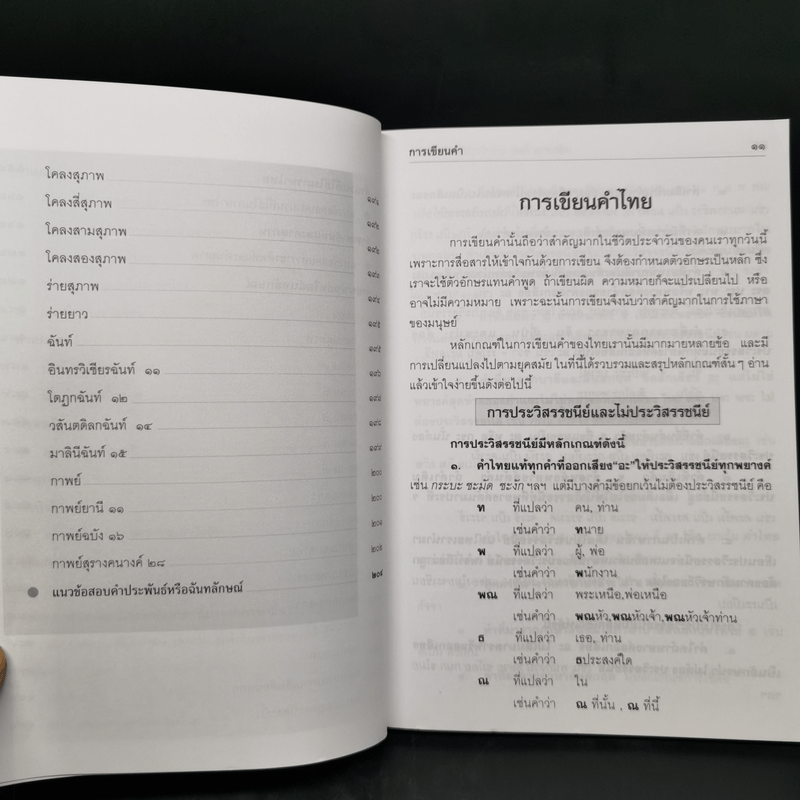 โคลงสุภาพ
โคลงสี่สุภาพ
โคลงสามสุภาพ
โคลงสองสุภาพ
ร่ายสุภาพ
ร่ายยาว
ฉันท์
อินทรวิเชียรฉันท์ ๑๑
โตฎกฉันท์ ๑๒
วสันตดิลกฉันท์ ๑๔
มาลินีฉันท์ ๑๕
กาพย์ ๒๐๐
กาพย์ยานี ๑๑ ๒๐๐
กาพย์ฉบัง ๑๖
กาพย์สุรางคนางค์ ๒๘
แนวข้อสอบคำประพันธ์หรือฉันทลักษณ์ ๒๐๔
การเขียนคำ ๑๑
การเขียนคำไทย
การเขียนคำนั้นถือว่าสำคัญมากในชีวิตประจำวันของคนเราทุกวันนี้
เพราะการสื่อสารให้เข้าใจกันด้วยการเขียน จึงต้องกำหนดตัวอักษรเป็นหลัก ซึ่ง
เราจะใช้ตัวอักษรแทนคำพูด ถ้าเขียนผิด ความหมายก็จะแปรเปลี่ยนไป หรือ
อาจไม่มีความหมาย เพราะฉะนั้นการเขียนจึงนับว่าสำคัญมากในการใช้ภาษา
ของมนุษย์
หลักเกณฑ์ในการเขียนคำของไทยเรานั้นมีมากมายหลายข้อ และมี
การเปลี่ยนแปลงไปตามยุคสมัย ในที่นี้ได้รวบรวมและสรุปหลักเกณฑ์สั้น ๆ อ่าน
แล้วเข้าใจง่ายขึ้นดังต่อไปนี้
การประวิสรรชนีย์และไม่ประวิสรรชนีย์
การประวิสรรชนีย์มีหลักเกณฑ์ดังนี้
๑. คำไทยแท้ทุกคำที่ออกเสียง“อะ”ให้ประวิสรรชนีย์ทุกพยางค์
เช่น กระบะ ขะมัด ขะงัก ฯลฯ แต่มีบางคำมีข้อยกเว้นไม่ต้องประวิสรรชนีย์ คือ
ท ที่แปลว่า คน, ท่าน
เช่นคำว่า ทนาย
พ ที่แปลว่า ผู้, พ่อ
เช่นคำว่า พนักงาน
พณ ที่แปลว่า พระเหนือ,พ่อเหนือ
เช่นคำว่า พณหัว,พณหัวเจ้า,พณหัวเจ้าท่าน
ธ ที่แปลว่า เธอ, ท่าน
เช่นคำว่า ธประสงค์ใด
ณ ที่แปลว่า ใน
เช่นคำว่า ณ ที่นั้น , ณ ที่นี้